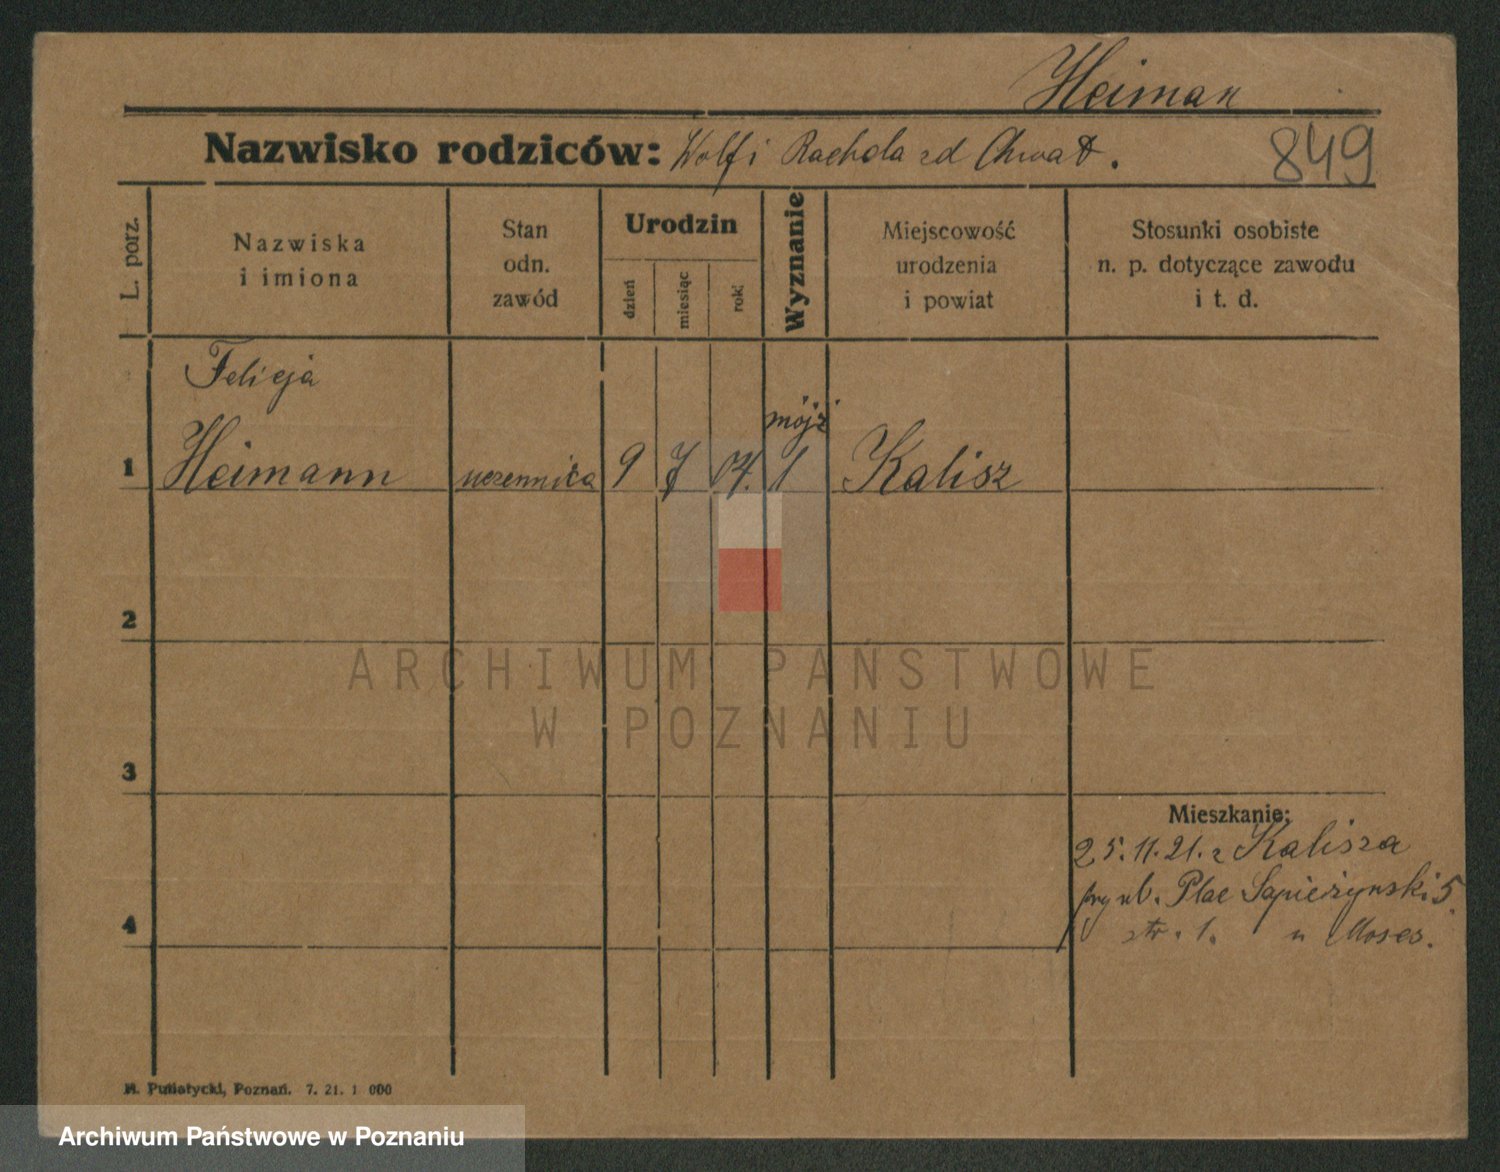 Heiman
Nazwisko rodziców: Wolf i Rachela zd Chwat.
849
L. porz.
Nazwiska
i imiona
Stan
odn.
zawód
Urodzin
dzień
miesiąc
rok
Wyznanie
Miejscowość
urodzenia
i powiat
Stosunki osobiste
n. p. dotyczące zawodu
i t. d.
Felicja
mojż
1 Heimann uczennica 9 7 04. 1 Kalisz
2
ARCHIWUM PAŃSTWOWE
W POZNANIU
3
Mieszkanie:
25.11.21. z Kalisza
Plac Sapieżynski 5.
4
str. 1. u Moses.
Poznań. 7. 21. 1 000
Archiwum Państwowe w Poznaniu